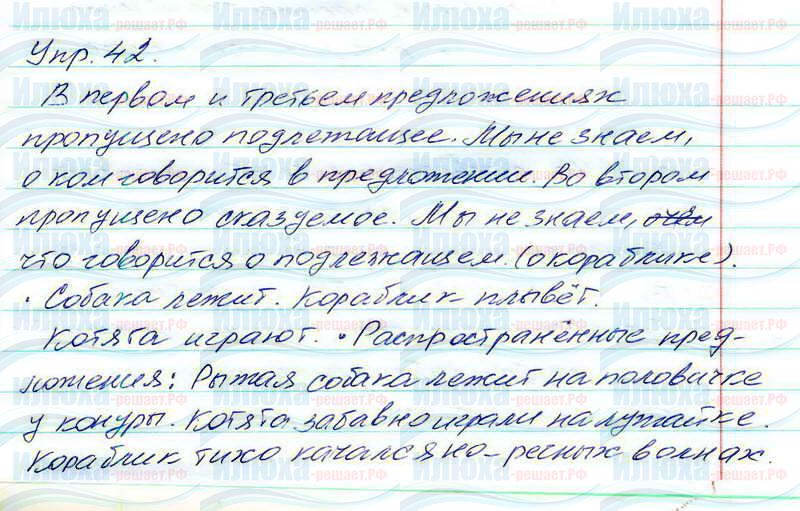 Упр. 42.
В первом и третьем предложениях
пропущено подлежащее. Мы не знаем,
о ком говорится в предложении. Во втором
пропущено сказуемое. Мы не знаем,
что говорится о подлежащем. (о кораблике).
• Собака лежит. Кораблик плывёт.
Котята играют. • Распространённые пред-
ложения: Рыжая собака лежит на половичке
у конуры. Котята забавно играли на лужайке.
Кораблик тихо качался на речных волнах.
Илюха
-решает.РФ